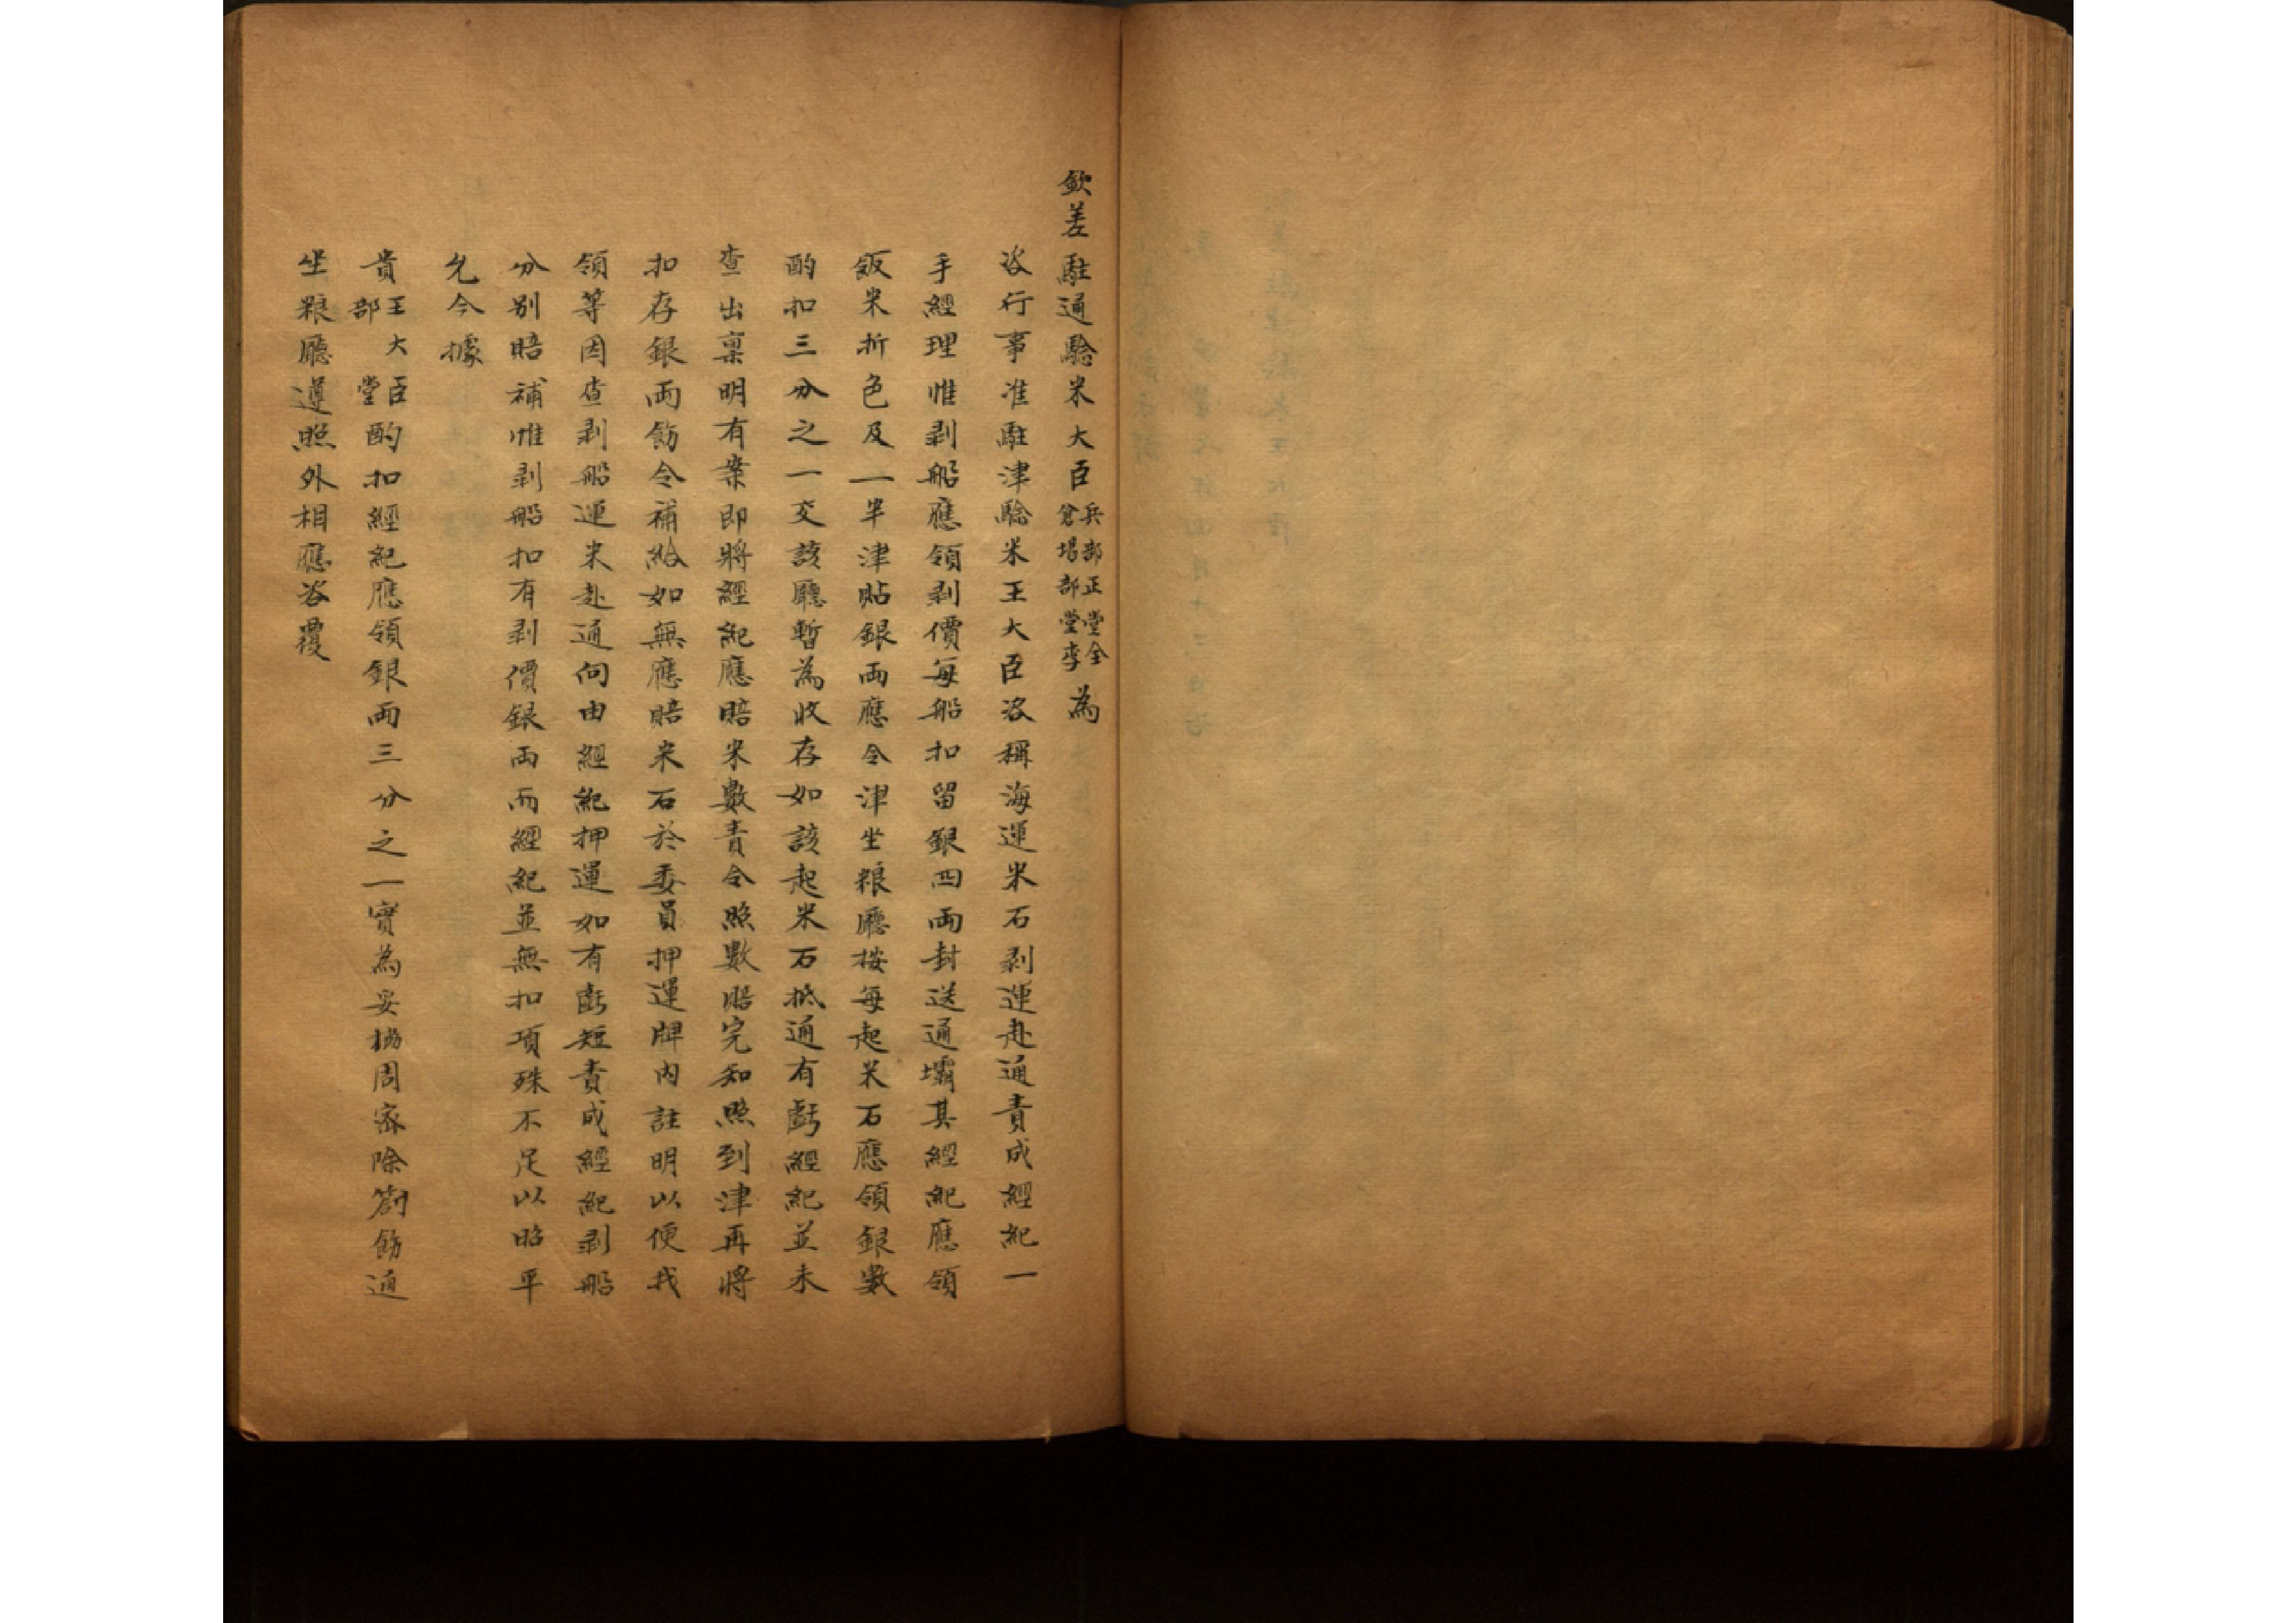 欽差駐通驗米大臣兵部正堂全倉場部堂李為
咨行事准駐津驗米王大臣咨稱海運米石剥運赴通責成經紀一
手經理惟剥船應領剥價每船扣留銀四兩封送通壩其經紀應領
飯米折色及一半津貼銀兩應令津坐粮廳按每起米石應領銀數
酌扣三分之一交該廳暫為收存如該起米石抵通有虧經紀並未
查出禀明有案即將經紀應賠米數責令照數賠完知照到津再將
扣存銀兩飭令補給如無應賠米石於委員押運牌内註明以便找
領等因查剥船運米赴通向由經紀押運如有虧短責成經紀剥船
分别賠補惟剥船扣有剥價銀兩而經紀並無扣項殊不足以昭平
允今據
貴王大臣部堂酌扣經紀應領銀兩三分之一實為妥協周密除劄飭通
坐粮廳遵照外相應咨覆